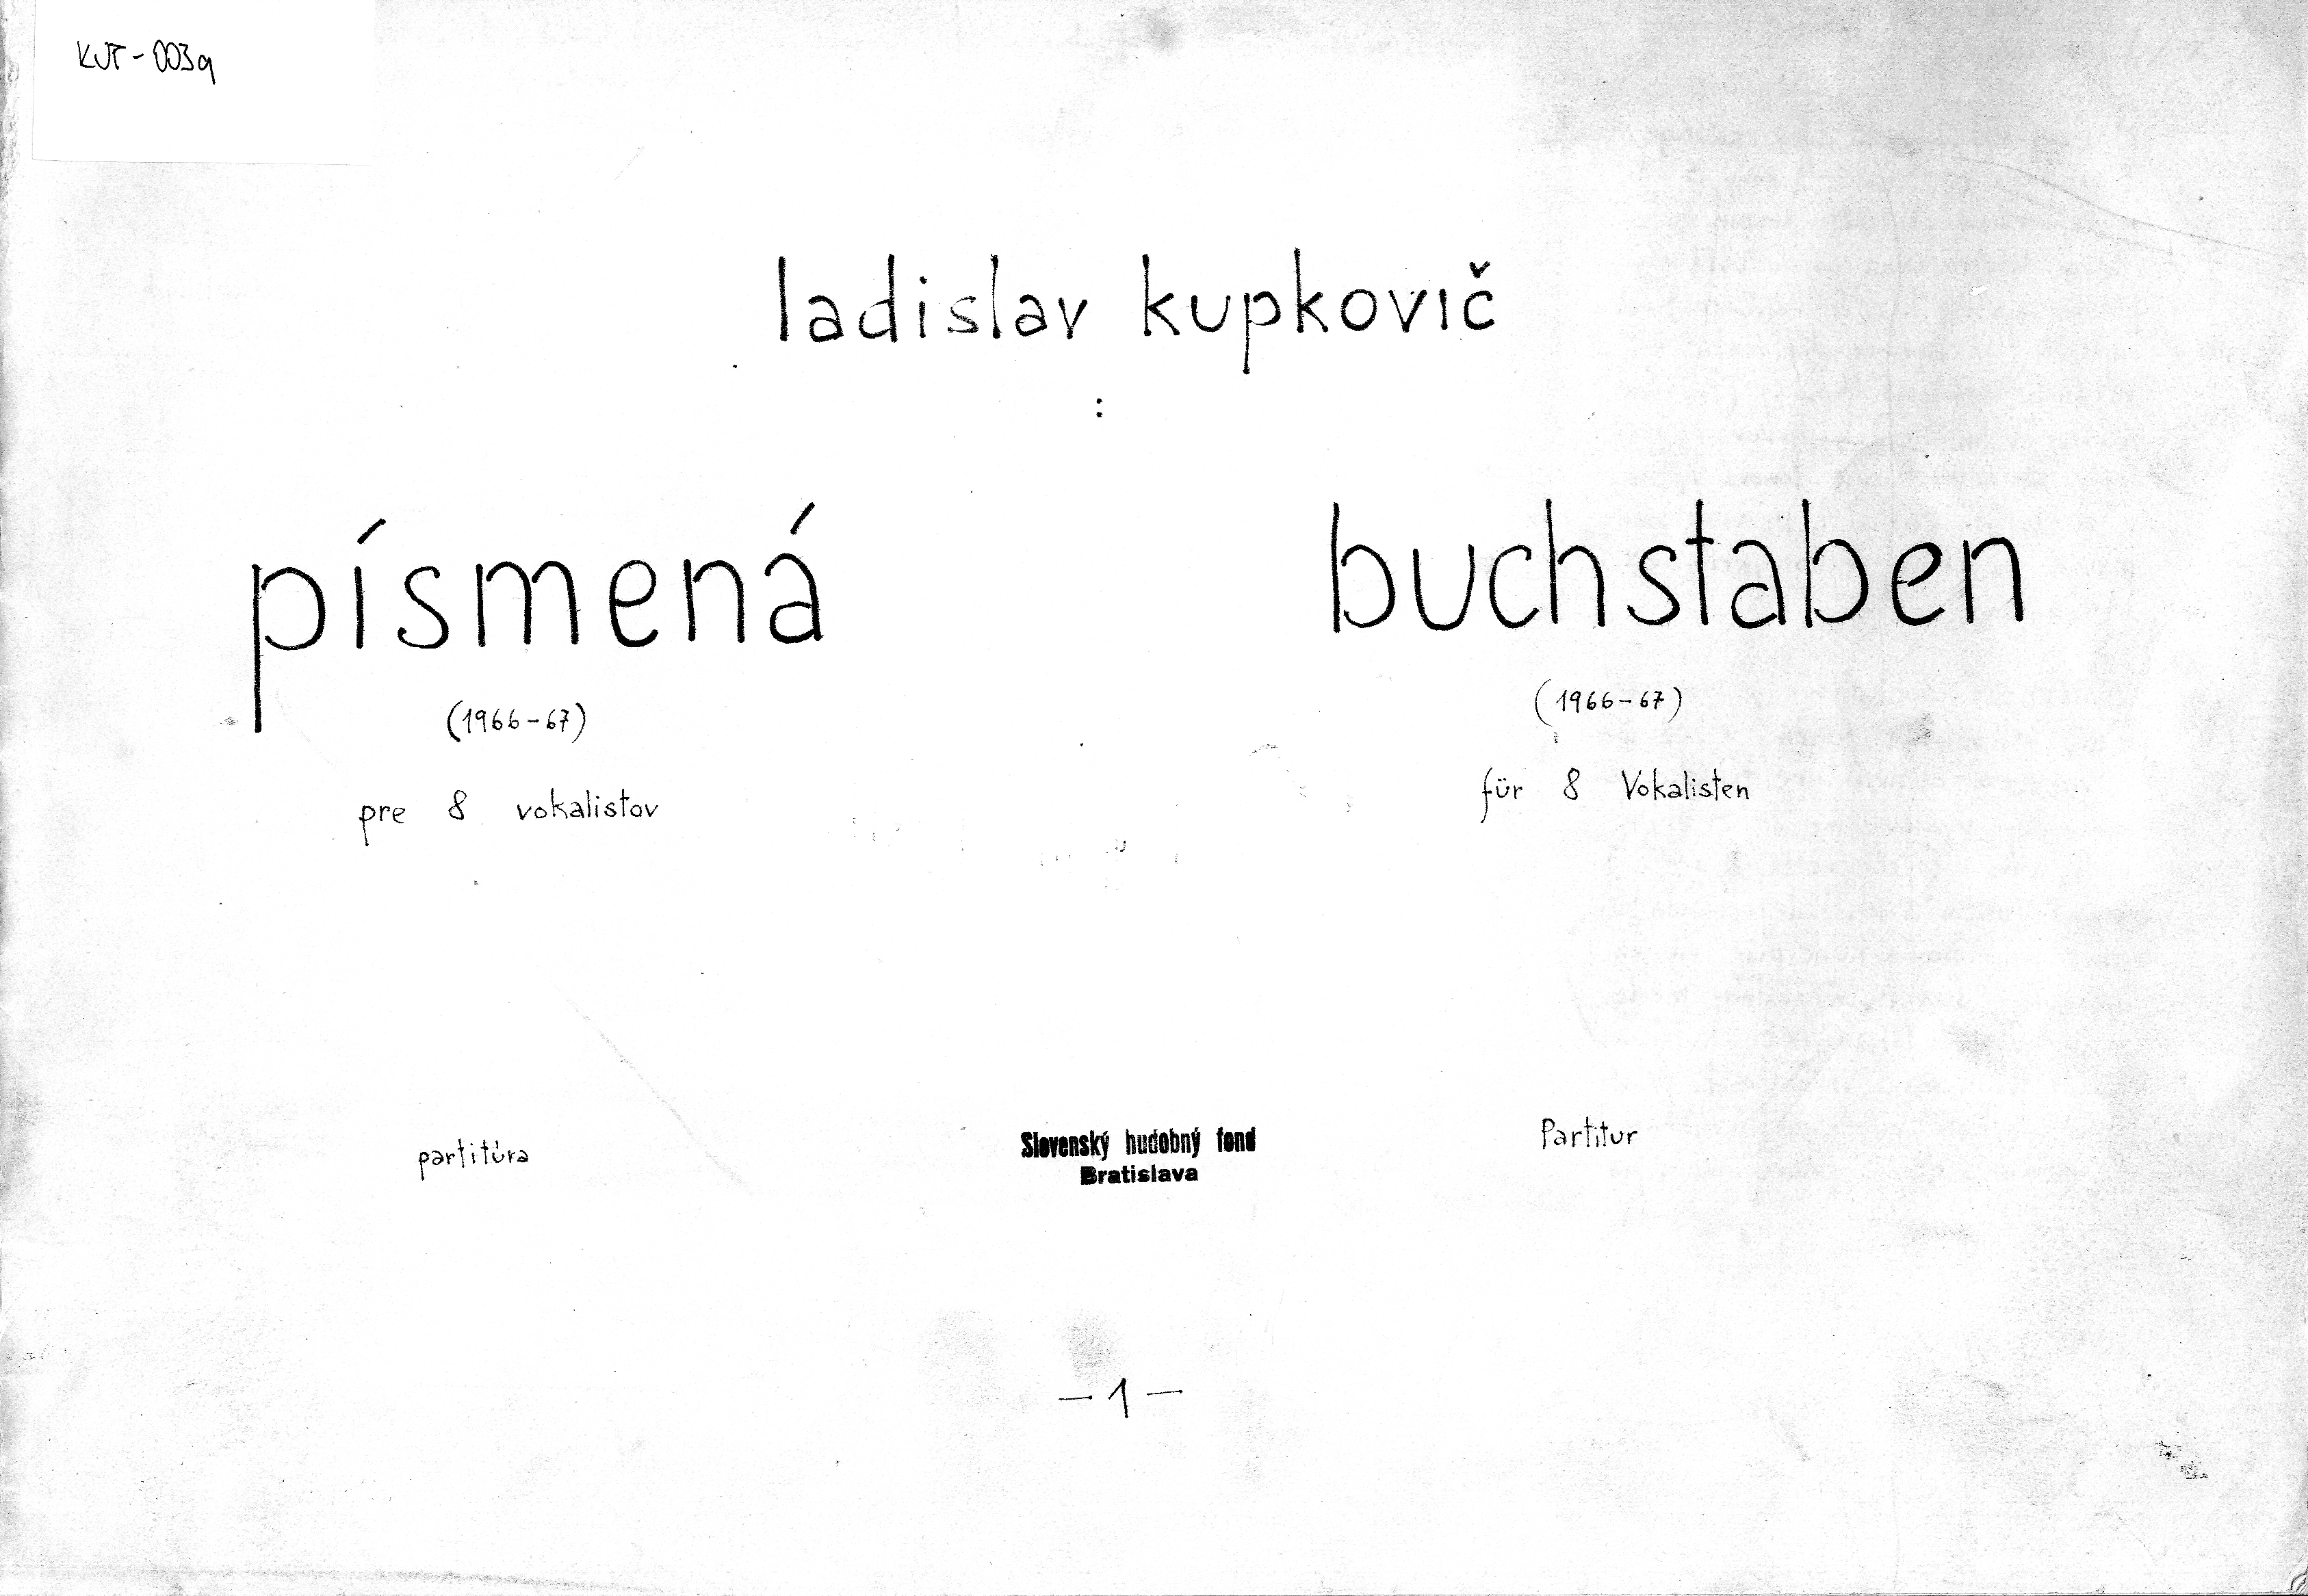 KUT-003a
ladislav kupkovič
:
písmená
(1966-67)
pre 8 vokalistov
partitúra
buchstaben
(1966-67)
für 8 Vokalisten
Partitur
Slovenský hudobný fond
Bratislava
-1-